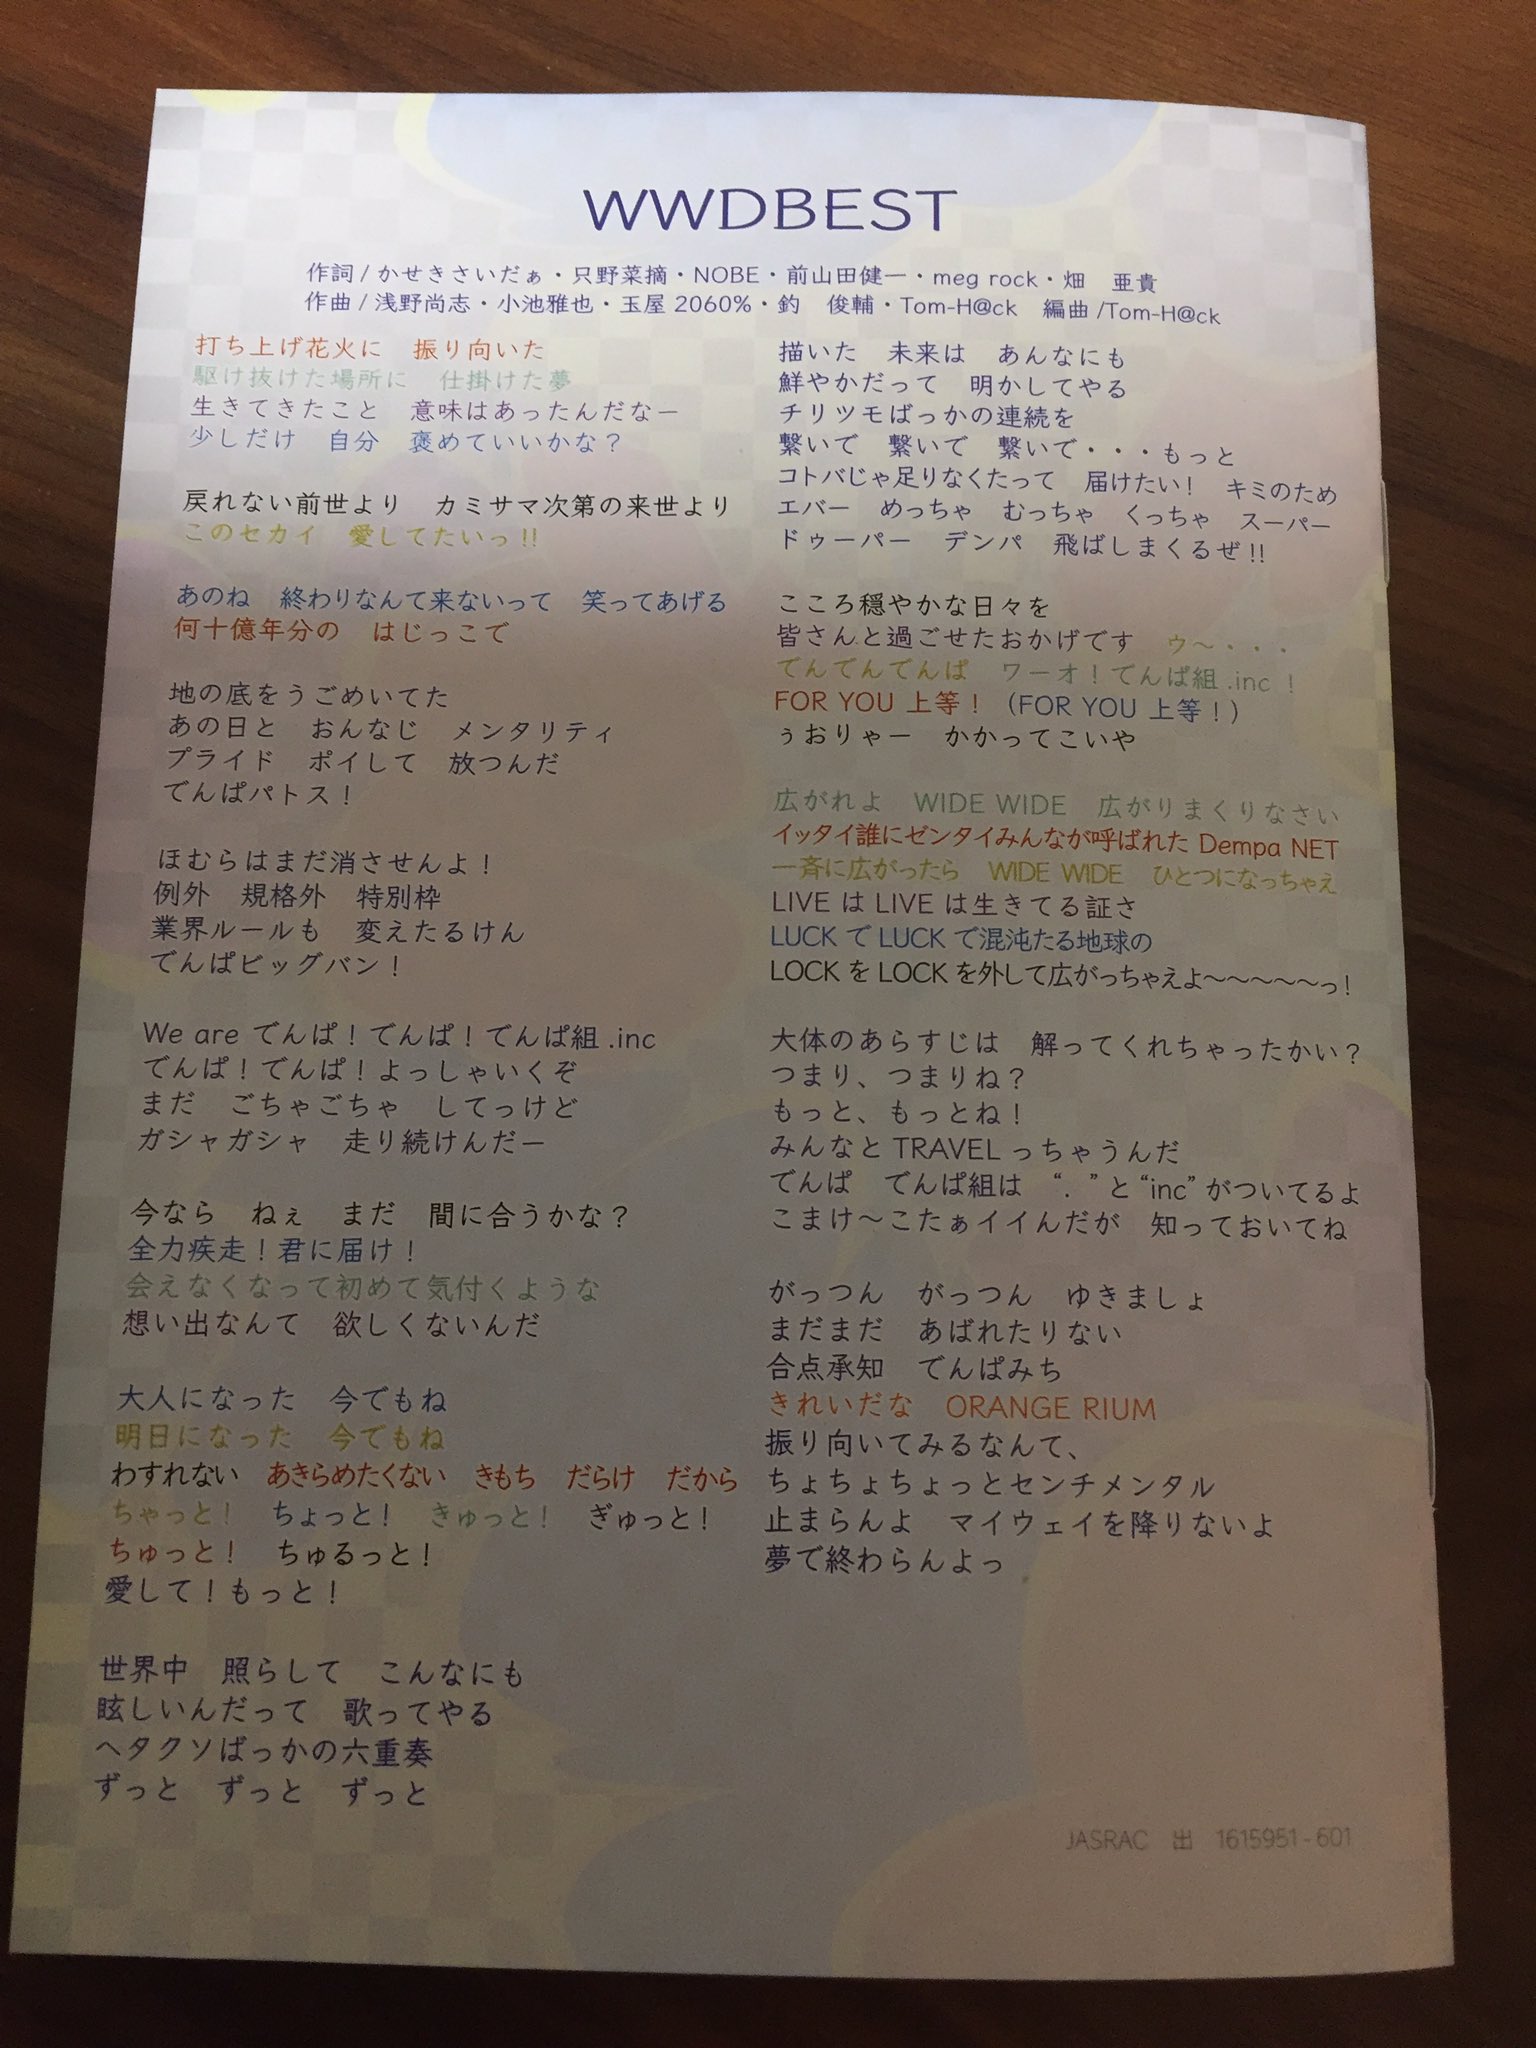 WWDBEST
作詞/かせきさいだぁ・只野菜摘・NOBE・前山田健一・meg rock・畑　亜貴
作曲/浅野尚志・小池雅也・玉屋2060%・釣　俊輔・Tom-H@ck　編曲/Tom-H@ck
打ち上げ花火に　振り向いた
駆け抜けた場所に　仕掛けた夢
生きてきたこと　意味はあったんだなー
少しだけ　自分　褒めていいかな？
戻れない前世より　カミサマ次第の来世より
このセカイ　愛してたいっ!!
あのね　終わりなんて来ないって　笑ってあげる
何十億年分の　はじっこで
地の底をうごめいてた
あの日と　おんなじ　メンタリティ
プライド　ポイして　放つんだ
でんぱパトス！
ほむらはまだ消させんよ！
例外　規格外　特別枠
業界ルールも　変えたるけん
でんぱビッグバン！
We are でんぱ！でんぱ！でんぱ組.inc
でんぱ！でんぱ！よっしゃいくぞ
まだ　ごちゃごちゃ　してっけど
ガシャガシャ　走り続けんだー
今なら　ねぇ　まだ　間に合うかな？
全力疾走！君に届け！
会えなくなって初めて気付くような
想い出なんて　欲しくないんだ
大人になった　今でもね
明日になった　今でもね
わすれない　あきらめたくない　きもち　だらけ　だから
ちゃっと！　ちょっと！　きゅっと！　ぎゅっと！
ちゅっと！　ちゅるっと！
愛して！もっと！
世界中　照らして　こんなにも
眩しいんだって　歌ってやる
ヘタクソばっかの六重奏
ずっと　ずっと　ずっと
描いた　未来は　あんなにも
鮮やかだって　明かしてやる
チリツモばっかの連続を
繋いで　繋いで　繋いで・・・もっと
コトバじゃ足りなくたって　届けたい！　キミのため
エバー　めっちゃ　むっちゃ　くっちゃ　スーパー
ドゥーパー　デンパ　飛ばしまくるぜ!!
こころ穏やかな日々を
皆さんと過ごせたおかげです　ゥ〜・・・
でんでんでんぱ　ワーオ！でんぱ組.inc！
FOR YOU 上等！（FOR YOU 上等！）
ぅおりゃー　かかってこいや
広がれよ　WIDE WIDE　広がりまくりなさい
イッタイ誰にゼンタイみんなが呼ばれた Dempa NET
一斉に広がったら　WIDE WIDE　ひとつになっちゃえ
LIVE は LIVE は生きてる証さ
LUCK で LUCK で混沌たる地球の
LOCK を LOCK を外して広がっちゃえよ〜〜〜〜〜っ！
大体のあらすじは　解ってくれちゃったかい？
つまり、つまりね？
もっと、もっとね！
みんなと TRAVEL っちゃうんだ
でんぱ　でんぱ組は　“．”と“inc”がついてるよ
こまけ〜こたぁイイんだが　知っておいてね
がっつん　がっつん　ゆきましょ
まだまだ　あばれたりない
合点承知　でんぱみち
きれいだな　ORANGE RIUM
振り向いてみるなんて、
ちょちょちょっとセンチメンタル
止まらんよ　マイウェイを降りないよ
夢で終わらんよっ
JASRAC　出　1615951-601